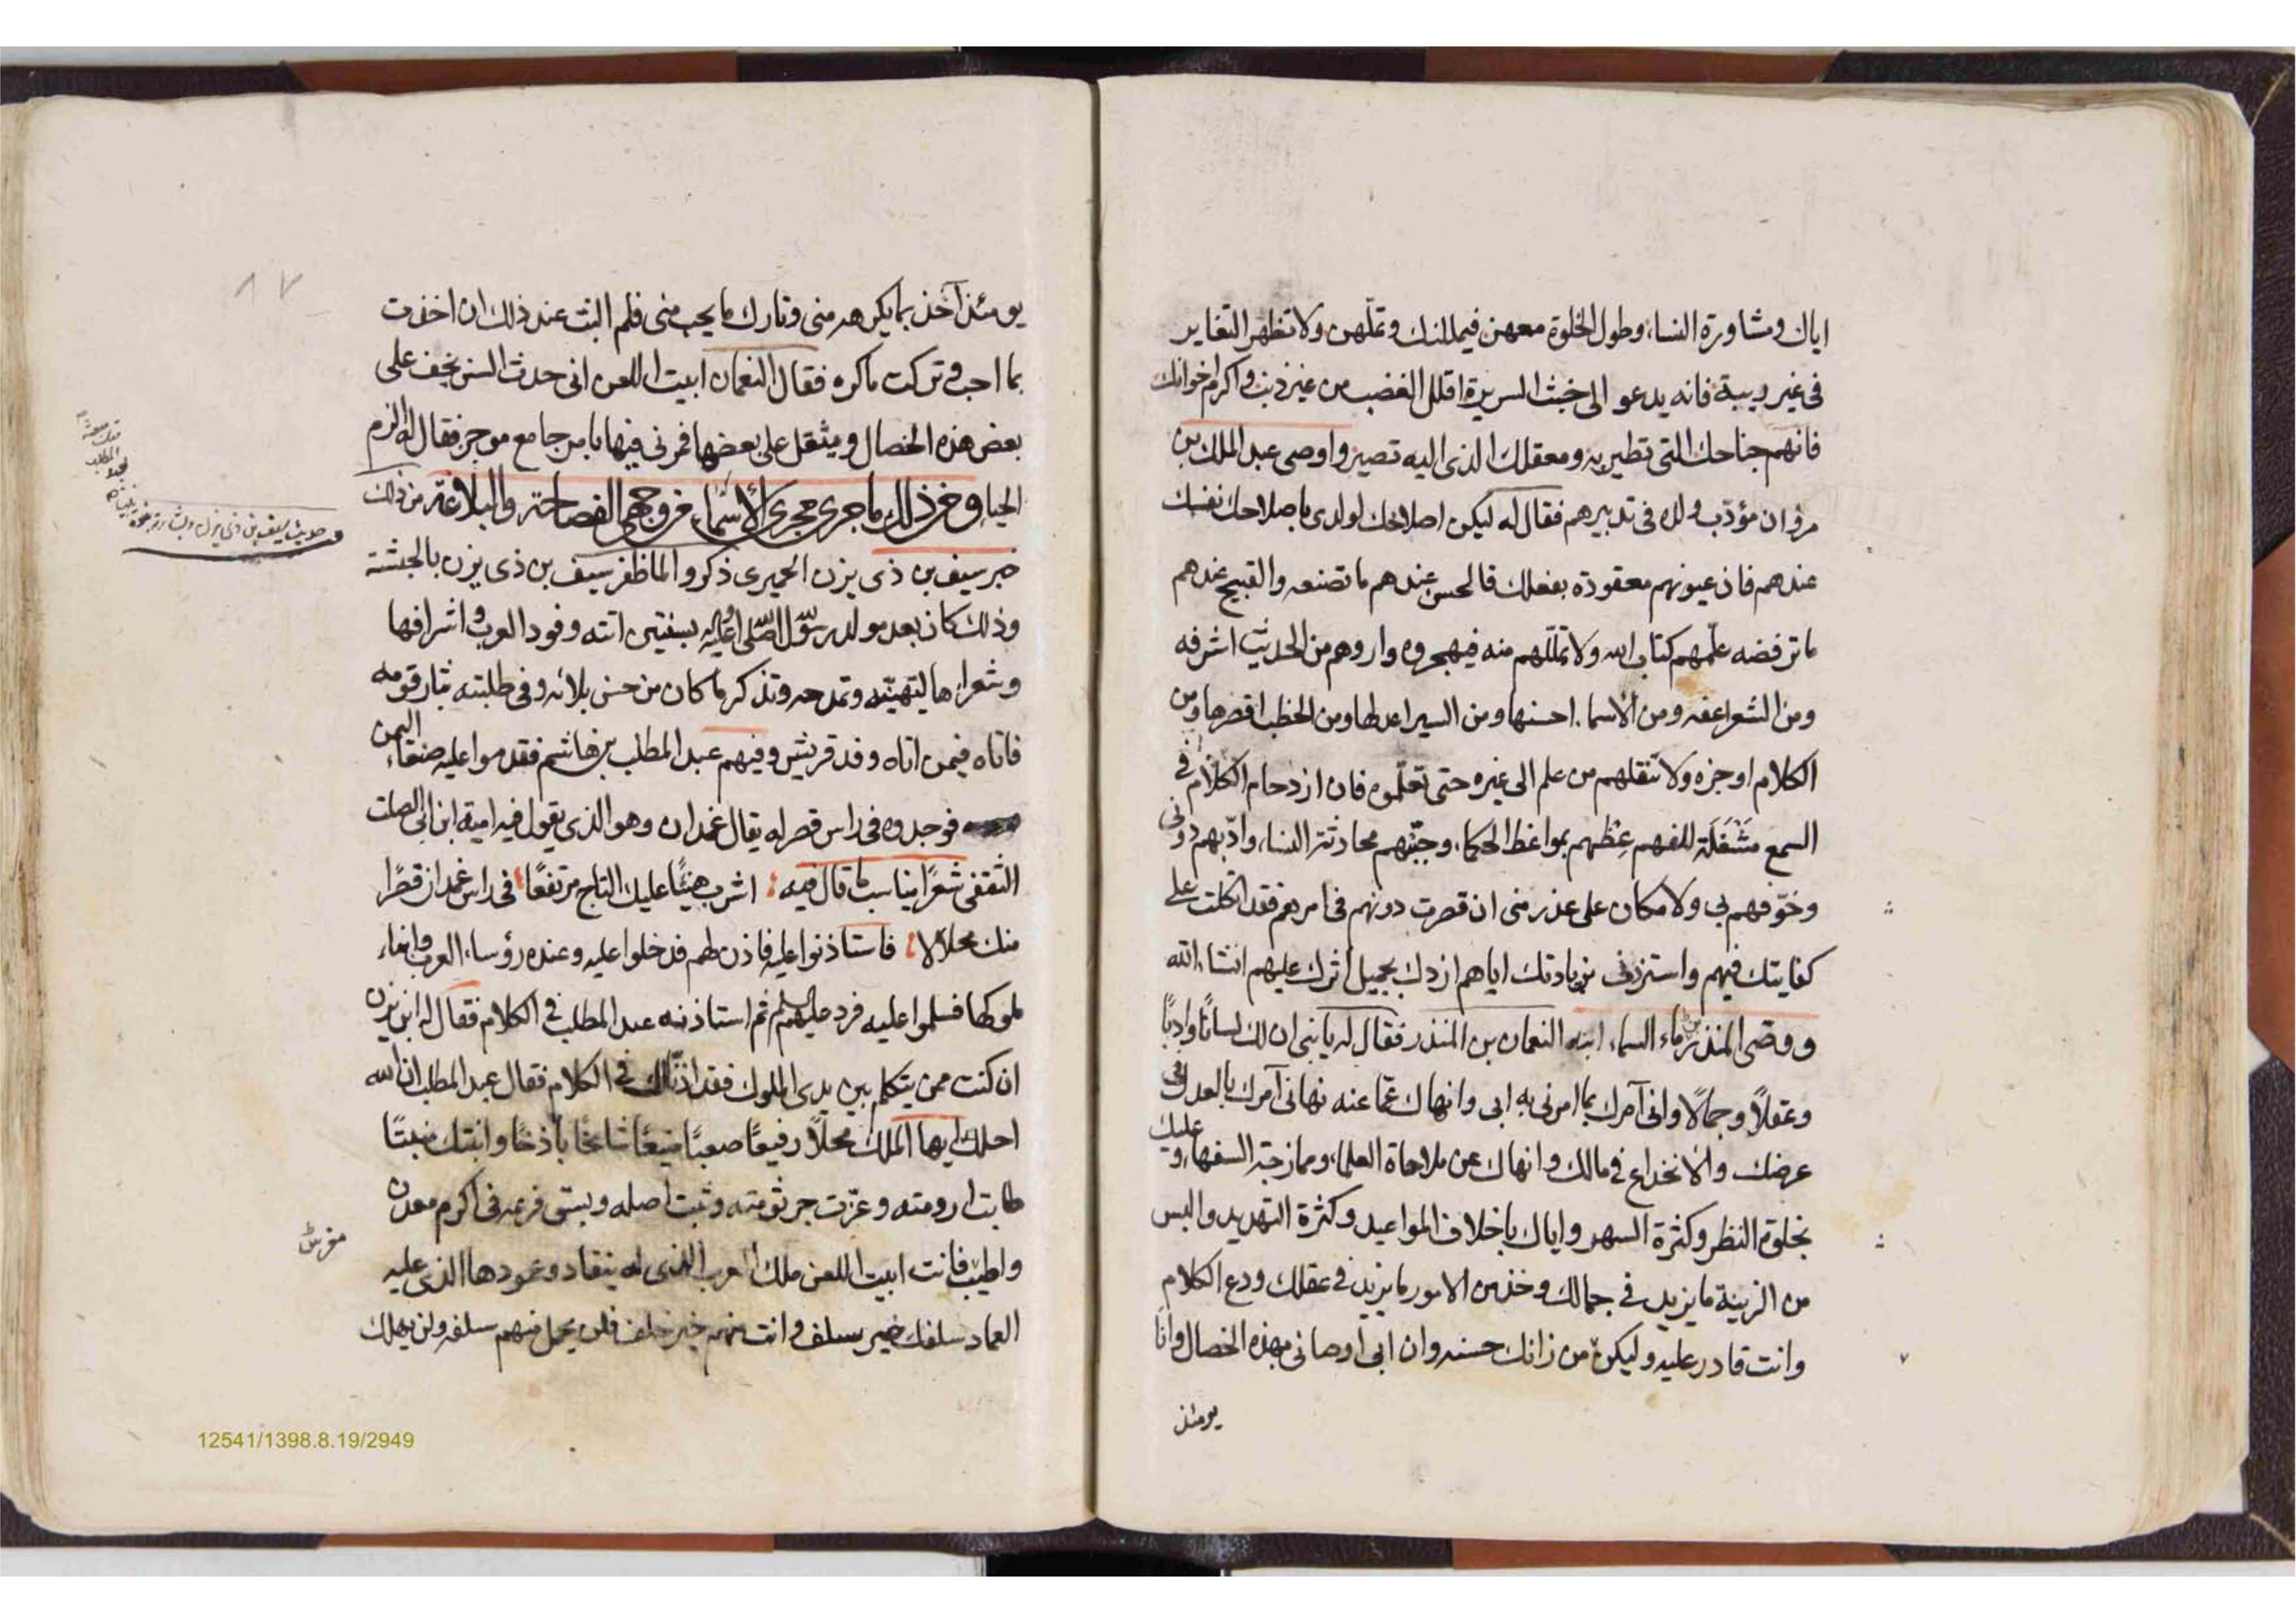 اياك ومشاورة النساء وطول الخلوة معهن فيمللنك وتملّهن ولا تظهر التغاير
فى غير ريبة فانه يدعو الى خبث السريرة اقلل الغضب من غير ذنب واكرم اخوانك
فانهم جناحك التى تطير به ومعقلك الذى اليه تصير واوصى عبد الملك بن
مروان مؤدّب ولده فى تدبيرهم فقال له ليكن اصلاحك لولدى باصلاحك نفسك
عندهم فان عيونهم معقودة بفعلك فالحسن عندهم ما تصنعه والقبيح عندهم
ما ترفضه علّمهم كتاب الله ولا تملّلهم منه فيهجروه واروهم من الحديث اشرفه
ومن الشعر اعفه ومن الاسماء احسنها ومن السير اعدلها ومن الخطب اقصرها ومن
الكلام اوجزه ولا تنقلهم من علم الى غيره حتى تعلّموه فان ازدحام الكلام فى
السمع مَشْغَلَة للفهم عِظهم بمواعظ الحكماء وجنّبهم محادثة النساء وادّبهم دونى
وخوّفهم بى ولا مكان على عذر منى ان قصرت دونهم فى امرهم فقد اتكلت على
كفايتك فيهم واستزدنى بزيادتك اياهم ازدك بجميل اثرك عليهم انشاء الله
ووصى المنذر بن ماء السماء ابنه النعمان بن المنذر فقال له يا بنى ان لك لسانًا وادبًا
وعقلاً وجمالًا وانى آمرك بما امرنى به ابى وانهاك عمّا عنه نهانى آمرك بالعدل فى
عرضك والانخداع فى مالك وانهاك عن ملاحاة العلماء وممازحة السفهاء وعليك
بخلوة النظر وكثرة السهر واياك باخلاف المواعيد وكثرة التهديد والبس
من الزينة ما يزيد فى جمالك وخذ من الامور ما يزيد فى عقلك ودع الكلام
وانت قادر عليه وليكن من زانك حسنه وان ابى اوصانى بهذه الخصال وانا
يومئذ
١٧
يومئذ آخذ بما يكره منى وتارك ما يحب منى فلم البث عند ذلك ان اخذت
بما احب وتركت ما كره فقال النعمان ابيت اللعن انى حدث السن يخف على
بعض هذه الخصال ويثقل على بعضها فمرنى فيها بامر جامع موجز فقال له الزم
الحياء ومن ذلك ما جرى مجرى الأسماء فى وجهى الفصاحة والبلاغة من ذلك
خبر سيف بن ذى يزن الحميرى ذكروا لما ظفر سيف بن ذى يزن بالحبشة
وذلك كان بعد مولد رسول الله صلى الله عليه بسنتين اتته وفود العرب واشرافها
وشعراءها لتهنئه وتمدحه وتذكر ما كان من حسن بلائه وفى طلبته بثار قومه
فاتاه فيمن اتاه وفد قريش وفيهم عبد المطلب بن هاشم فقدموا عليه صنعاء اليمن
فوجدوه فى راس قصر له يقال غمدان وهو الذى يقول فيه امية ابن ابى الصلت
الثقفى شعرًا يناسب ما قال فيه اشرب هنيئًا عليك التاج مرتفعًا فى راس غمدان قصرًا
منك محلالا فاستاذنوا عليه فاذن لهم فدخلوا عليه وعنده رؤساء العرب وابناء
ملوكها فسلموا عليه فرد عليهم السلم ثم استاذنه عبد المطلب فى الكلام فقال له ابن يزن
ان كنت ممن يتكلم بين يدى الملوك فقد اذنّا لك فى الكلام فقال عبد المطلب ان الله
احلك ايها الملك محلاً رفيعًا صعبًا منيعًا شامخًا باذخًا وانبتك منبتًا
طابت ارومته وعزّت جرثومته وثبت اصله وبسق فرعه فى اكرم معدن
واطيب فانت ابيت اللعن ملك العرب الذى له ينقاد وعمودها الذى عليه
العماد سلفك خير سلف وانت منهم خير خلف فلن يخمل منهم سلفه ولن يهلك
حديث سيف بن ذى يزن
12541/1398.8.19/2949